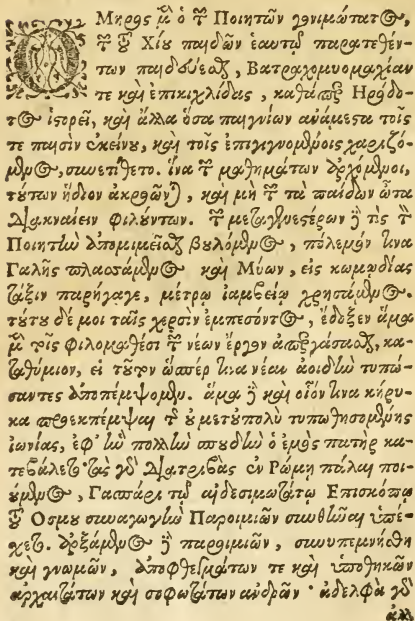 Ὅμηρος μὲν ὁ τῶν Ποιητῶν γονιμώτατος,
τῶν τοῦ Χίου παίδων ἑαυτῷ παρατεθέν-
των παιδεύεσθαι, Βατραχομυομαχίαν
τε καὶ ἐπικιχλίδας, καθάπερ Ηρόδο-
τος ἱστορεῖ, καὶ ἄλλα ὅσα παιγνίων ἀνάμεστα τοῖς
τε παισὶν ἐκείνου, καὶ τοῖς ἐπιγιγνομένοις χαριζό-
μενος, συνετίθετο. ἵνα τῶν μαθημάτων ἀρχόμενοι,
τούτων ἥδιον ἀκροῶνται, καὶ μὴ τῶν τὰ παίδων ὦτα
διακναίειν φιλούντων. τῶν μεταγενεστέρων δέ τις τὸν
Ποιητὴν ἀπομιμεῖσθαι βουλόμενος, πόλεμόν τινα
Γαλῆς πλασάμενος καὶ Μύων, εἰς κωμῳδίας
τάξιν παρήγαγε, μέτρῳ ἰαμβείῳ χρησάμενος.
τούτου δέ μοι ταῖς χερσὶν ἐμπεσόντος, ἔδοξεν ἅμα
μὲν τοῖς φιλομαθέσι τῶν νέων ἔργον ἀπεργάσασθαι, κα-
ταθύμιον, εἰ τοῦτον ὥσπέρ τινα νέαν ἀοιδὴν τυπώ-
σαντες ἀποπέμψομεν. ἅμα δὲ καὶ οἷόν τινα κήρυ-
κα προεκπέμψαι τῆς οὐ μετὰ πολὺ τυπωθησομένης
ἰωνίας, ἐφ' ἣν πολλὴν σπουδὴν ὁ ἐμὸς πατὴρ κα-
τεβάλετο. τὰς γὰρ διατριβὰς ἐν Ρώμῃ πάλαι ποι-
ούμενος, Γασπάρι τῷ αἰδεσιμωτάτῳ Επισκόπῳ
τοῦ Οσμου συναγωγὴν Παροιμιῶν συνθεῖναι ὑπέ-
σχετο. ἀρξάμενος δὲ παροιμιῶν, συνυπεμνήσθη
καὶ γνωμῶν, ἀποφθεγμάτων τε καὶ ὑποθηκῶν
ἀρχαιοτάτων καὶ σοφωτάτων ἀνδρῶν· ἀδελφὰ γὰρ